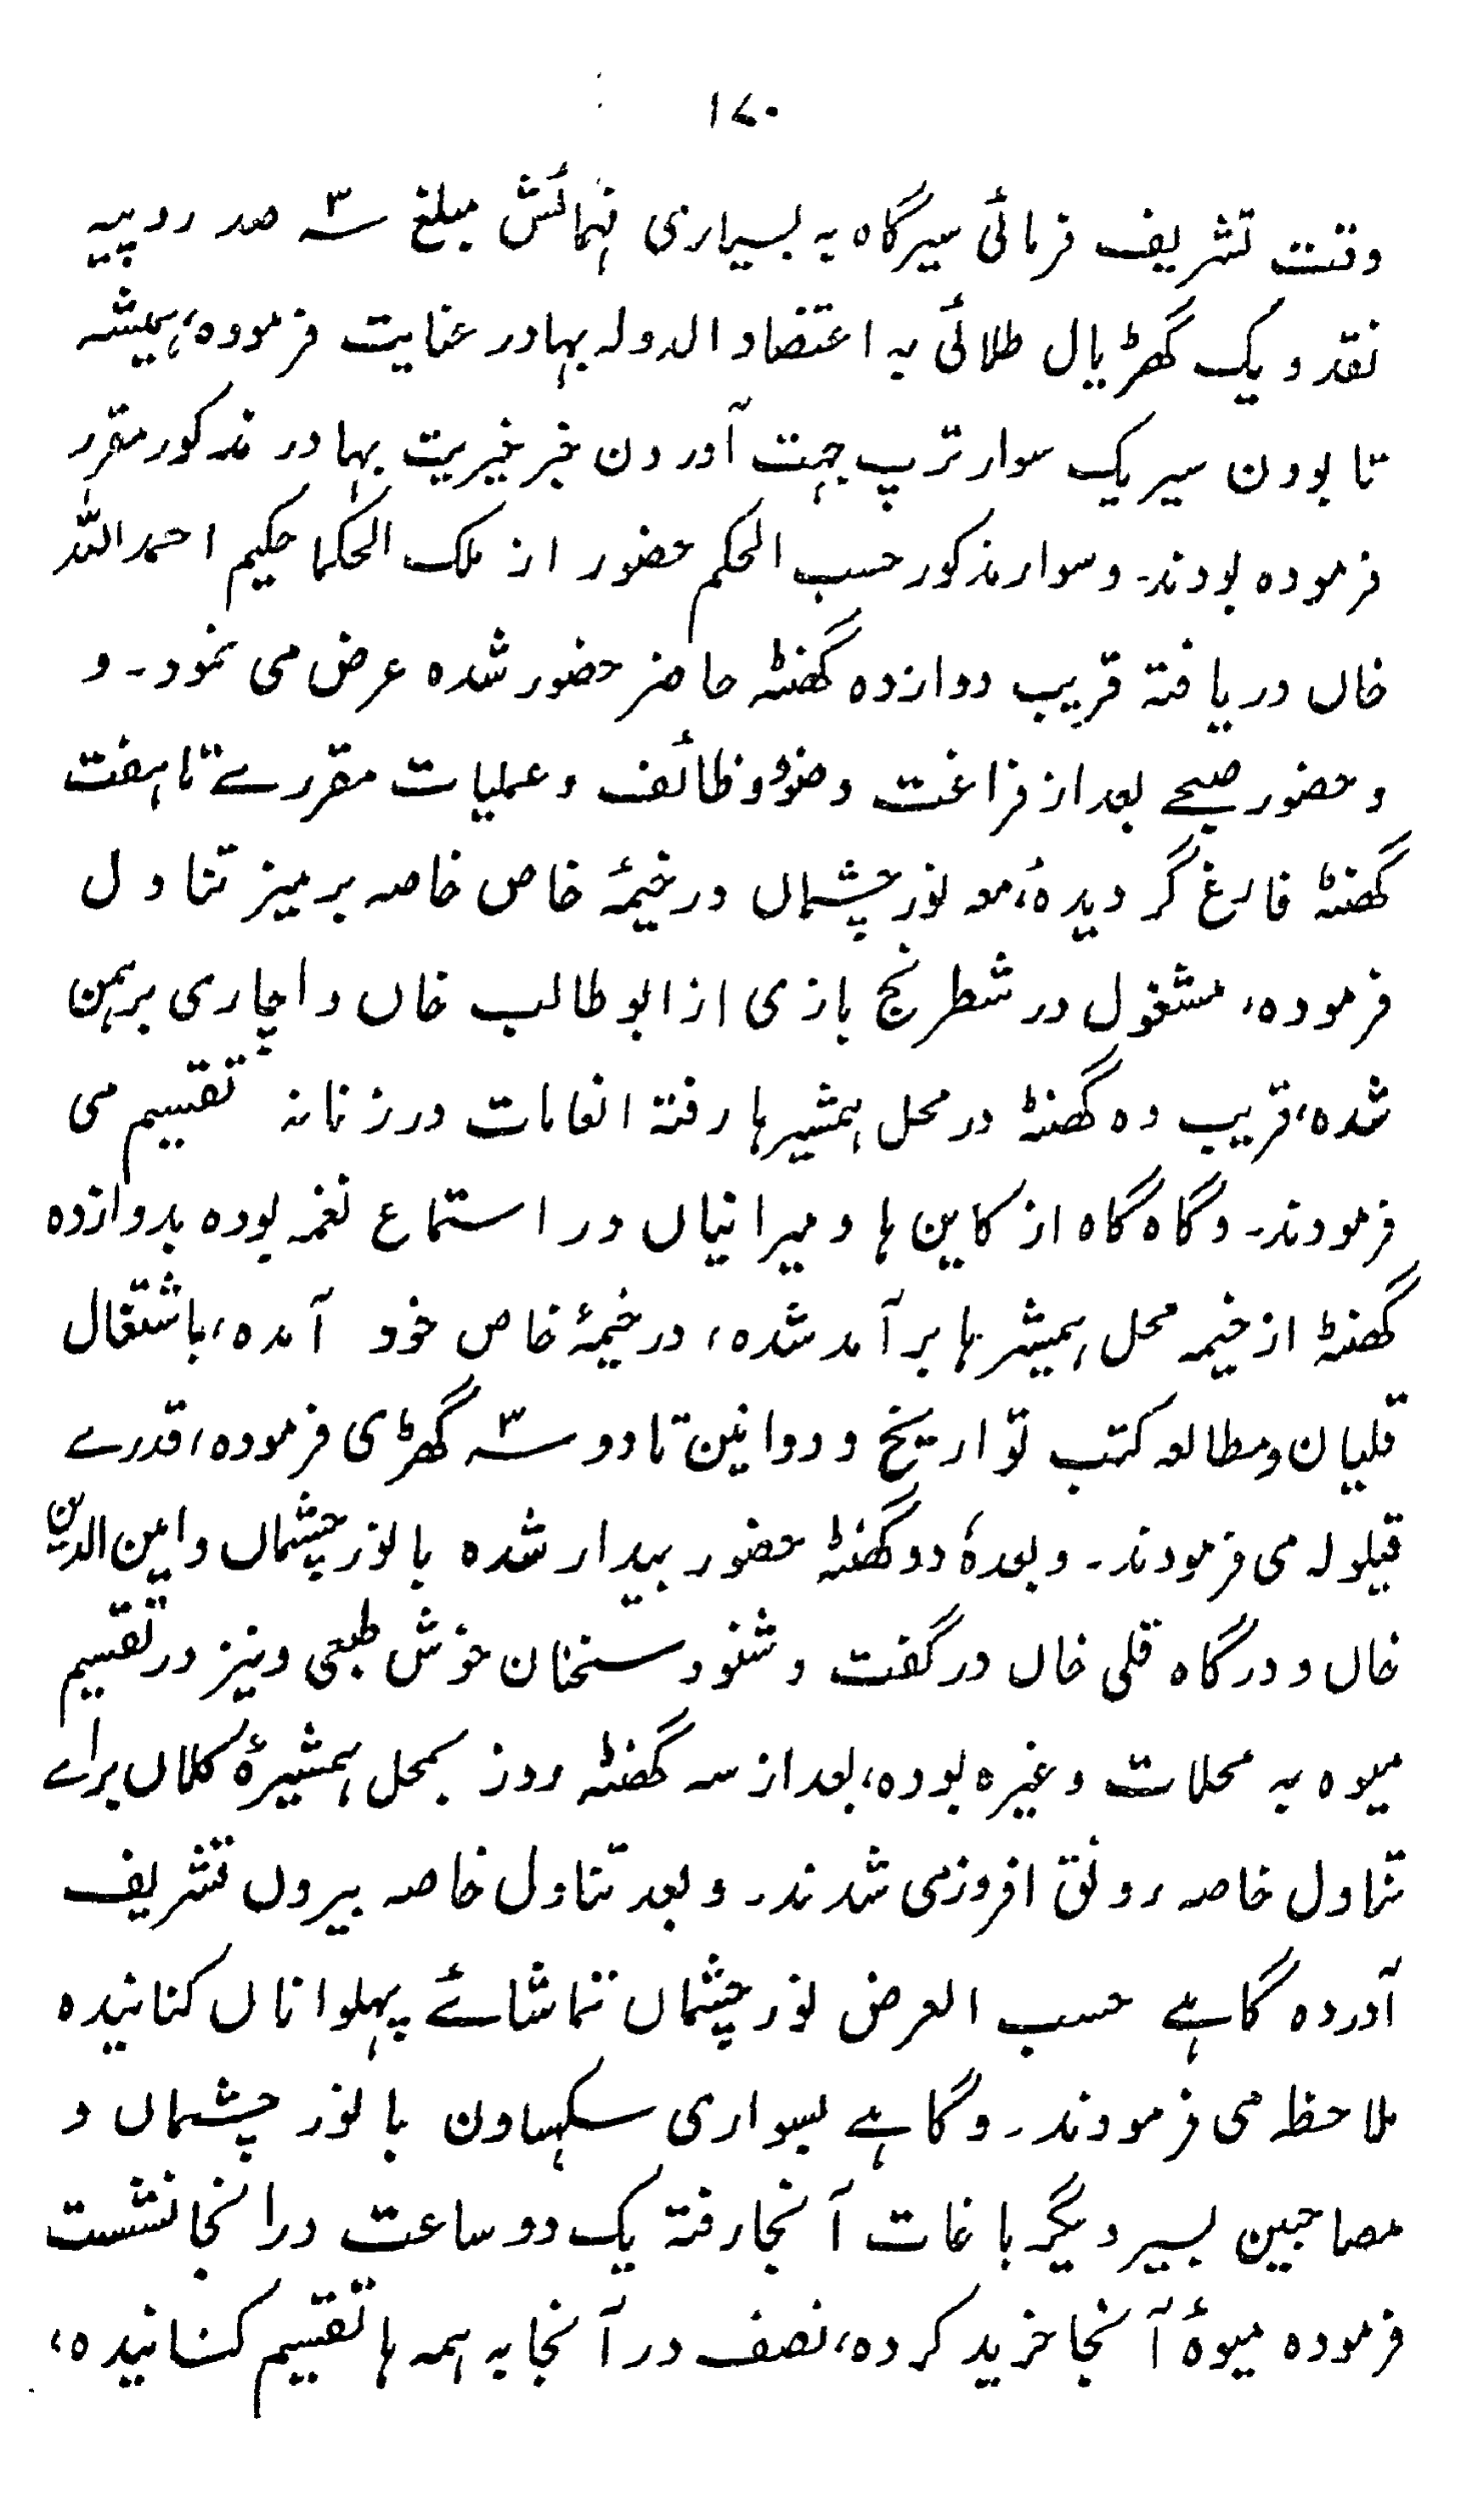 ۱۷۰
وقت تشریف فرمائی سیرگاہ بہ بسیاری فہمائش مبلغ سہ۳ صد روپیہ
نقد و یک گھڑیال طلائی بہ اعتضاد الدولہ بہادر عنایت فرمودہ، ہمیشہ
تا بودن سیر یک سوار ترپ جہت آوردن خبر خیریت بہادر مذکور مقرر
فرمودہ بودند۔ و سوار مذکور حسب الحکم حضور از ملک الحکما حکیم احمد اللہ
خاں دریافتہ قریب دوازدہ گھنٹہ حاضر حضور شدہ عرض می نمود۔ و
و حضور صبحے بعد از فراغت وضو و وظائف و عملیات مقررے تا ہفت
گھنٹہ فارغ گردیدہ، معہ نورچشماں در خیمۂ خاص خاصہ بر میز تناول
فرمودہ، مشغول در شطرنج بازی از ابو طالب خاں و اچاری برہمن
شدہ، قریب دہ گھنٹہ در محل ہمشیرہا رفتہ انعامات در زنانہ تقسیم می
فرمودند۔ و گاہ گاہ از کاین ہا و میرانیاں در استماع نغمہ بودہ بدوازدہ
گھنٹہ از خیمہ محل ہمیشرہا برآمد شدہ، در خیمۂ خاص خود آمدہ، باشتغال
قلیان و مطالعہ کتب تواریخ و دوانین تا دو سہ۳ گھڑی فرمودہ، قدرے
قیلولہ می فرمودند۔ و بعدہٗ دو گھنٹہ حضور بیدار شدہ با نورچشماں و امین الدین
خاں و درگاہ قلی خاں در گفت و شنود سخنان خوش طبعی و نیز در تقسیم
میوہ بہ محلات و غیرہ بودہ، بعد از سہ گھنٹہ روز بمحل ہمشیرۂ کلاں برائے
تناول خاصہ رونق افروزمی شدند۔ و بعد تناول خاصہ بیروں تشریف
آوردہ گاہے حسب العرض نورچشماں تماشائے پہلواناں کنانیدہ
ملاحظہ می فرمودند۔ و گاہے بسواری سکھاون با نورچشماں و
مصاحبین بسیر دیگر باغات آنجا رفتہ یک دو ساعت در انجا نشست
فرمودہ میوۂ آنجا خرید کردہ، نصف در آنجا بہ ہمہ ہا تقسیم کنانیدہ،